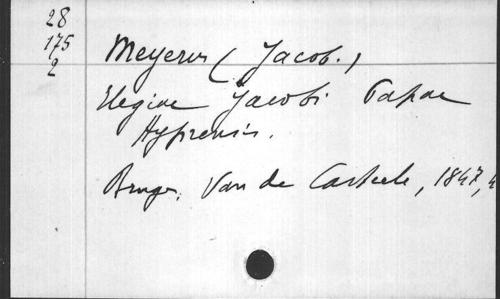 28
175
2
Meyerus (Jacob.)
Elegiae Jacobi Papae
Hyprensis.
Bruges. Van de Casteele, 1847, 4